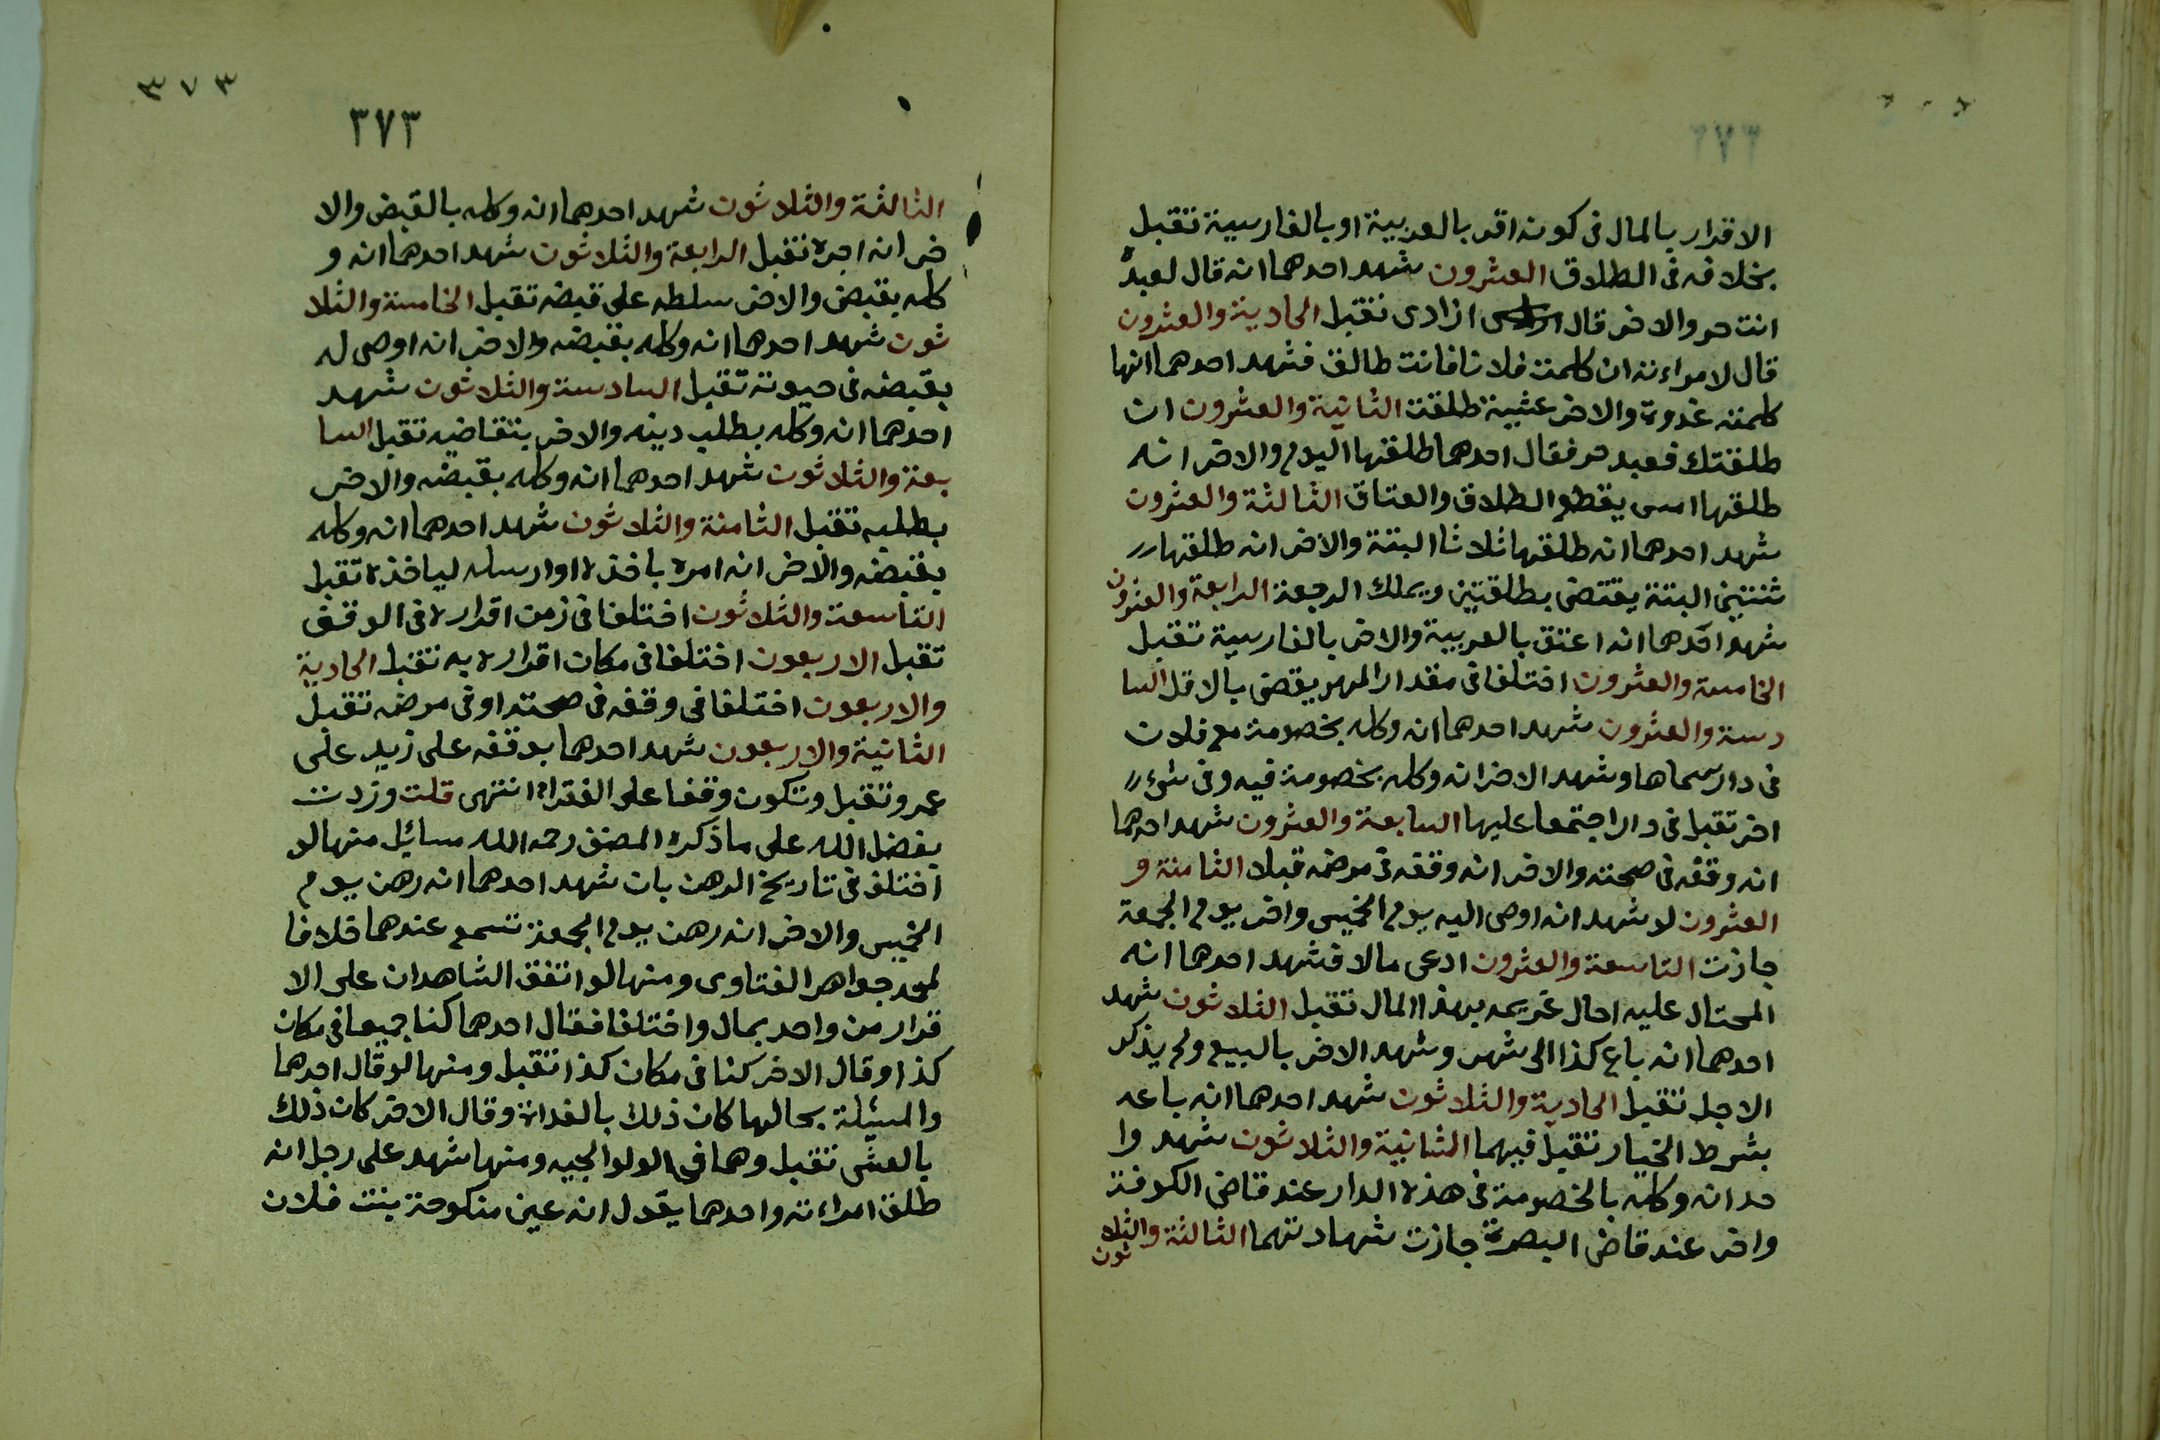 الاقرار بالمال فى كونه اقر بالعربية او بالفارسية تقبل
بخلافه فى الطلاق العشرون شهد احدهما انه قال لعبده
انت حر والاخر قال ازادى تقبل الحادية والعشرون
قال لامراءته ان كلمت فلانا فانت طالق فشهد احدهما انها
كلمته غدوة والاخر عشية طلقت الثانية والعشرون ان
طلقتك فعبد حر فقال احدهما طلقها اليوم والاخر انه
طلقها امس يقطع الطلاق والعتاق الثالثة والعشرون
شهد احدهما انه طلقها ثلاثا البتة والاخر انه طلقها
ثنتين البتة يقتضى بطلقتين ويملك الرجعة الرابعة والعشرون
شهد احدهما انه اعتق بالعربية والاخر بالفارسية تقبل
الخامسة والعشرون اختلفا فى مقدار المهر يقضى بالاقل السا
دسة والعشرون شهد احدهما انه وكله بخصومة مع فلان
فى دار سماها وشهد الاخر انه وكله بخصومة فيه وفى شئ
اخر تقبل فى دار اجتمعا عليها السابعة والعشرون شهد احدهما
انه وقفه فى صحته والاخر انه وقفه فى مرضه قبلا الثامنة و
العشرون لو شهد انه اوصى اليه يوم الخميس واخر يوم الجمعة
جازت التاسعة والعشرون ادعى مالا فشهد احدهما انه
المحتال عليه احال غريمه بهذا المال تقبل الثلاثون شهد
احدهما انه باع كذا الى شهر وشهد الاخر بالبيع ولم يذكر
الاجل تقبل الحادية والثلاثون شهد احدهما انه باعه
بشرط الخيار تقبل فيهما الثانية والثلاثون شهد وا
حد انه وكله بالخصومة فى هذه الدار عند قاضى الكوفة
واخر عند قاضى البصرة جازت شهادتهما الثالثة والثلا
ثون
٣٧٣
٣٧٣
الثالثة والثلاثون شهد احدهما انه وكله بالقبض والا
خر انه اجره تقبل الرابعة والثلاثون شهد احدهما انه و
كله بقبض والاخر سلطه على قبضه تقبل الخامسة والثلا
ثون شهد احدهما انه وكله بقبضه والاخر انه اوصى له
بقبضه فى حيوته تقبل السادسة والثلاثون شهد
احدهما انه وكله بطلب دينه والاخر بتقاضيه تقبل السا
بعة والثلاثون شهد احدهما انه وكله بقبضه والاخر
بطلبه تقبل الثامنة والثلاثون شهد احدهما انه وكله
بقبضه والاخر انه امره باخذه او ارسله لياخذه تقبل
التاسعة والثلاثون اختلفا فى زمن اقراره فى الوقف
تقبل الاربعون اختلفا فى مكان اقراره به تقبل الحادية
والاربعون اختلفا فى وقفه فى صحته او فى مرضه تقبل
الثانية والاربعون شهد احدهما بوقفه على زيد على
عمرو تقبل وتكون وقفا على الفقراء انتهى قلت وزدت
بفضل الله على ما ذكره المصنف رحمه الله مسائل منها لو
اختلف فى تاريخ الرهن بان شهد احدهما انه رهن يوم
الخميس والاخر انه رهن يوم الجمعة تسمع عندهما خلافا
لمحمد جواهر الفتاوى ومنها لو اتفق الشاهدان على الا
قرار من واحد بمال واختلفا فقال احدهما كنا جميعا فى مكان
كذا وقال الاخر كنا فى مكان كذا تقبل ومنها لو قال احدهما
والمسئلة بحالها كان ذلك بالغداة وقال الاخر كان ذلك
بالعشى تقبل وهما فى الولوالجيه ومنها شهد على رجل انه
طلق امراءته واحدهما يقول انه عين منكوحة بنت فلان